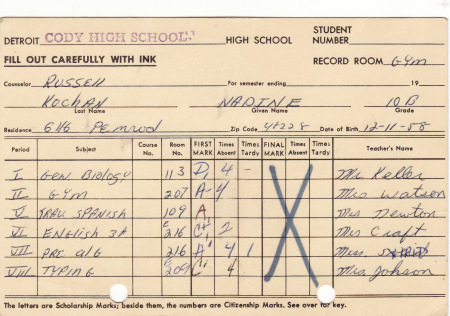 DETROIT CODY HIGH SCHOOL HIGH SCHOOL STUDENT NUMBER
FILL OUT CAREFULLY WITH INK RECORD ROOM GYM
Counselor RUSSELL For semester ending 19
KOCHAN NADINE 10B
Last Name Given Name Grade
Residence 6116 Pemrod Zip Code 48228 Date of Birth 12-11-58
Period Subject Course No. Room No. FIRST MARK Times Absent Times Tardy FINAL MARK Times Absent Times Tardy Teacher's Name
I GEN BIOLOGY 113 D 4 - Mr Keller
II GYM 207 A 4 Mrs Watson
V TRAV SPANISH 109 A Mrs Newton
VI ENGLISH 3A 216 C 2 Mrs Craft
VII PRE alG 216 A 4 1 Miss
VIII TYPING 209 C 4 Mrs Johson
The letters are Scholarship Marks; beside them, the numbers are Citizenship Marks. See over for key.